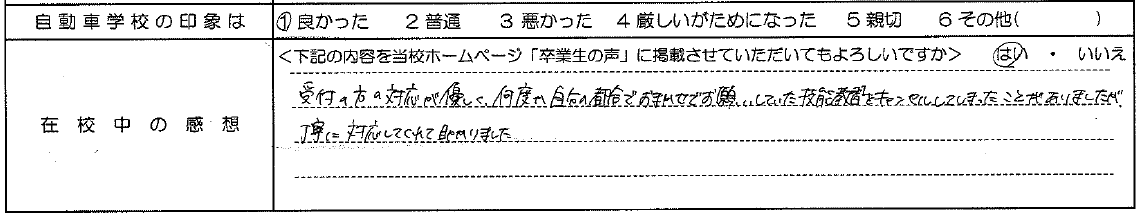 自動車学校の印象は ① 良かった 2 普通 3 悪かった 4 厳しいがためになった 5 親切 6 その他( )
<下記の内容を当校ホームページ「卒業生の声」に掲載させていただいてもよろしいですか> はい ・ いいえ
在校中の感想
受付の方の対応が優しく、何度か自分の都合でおまかせでお願いしていた技能教習をキャンセルしてしまったことがありましたが、
丁寧に対応してくれて助かりました